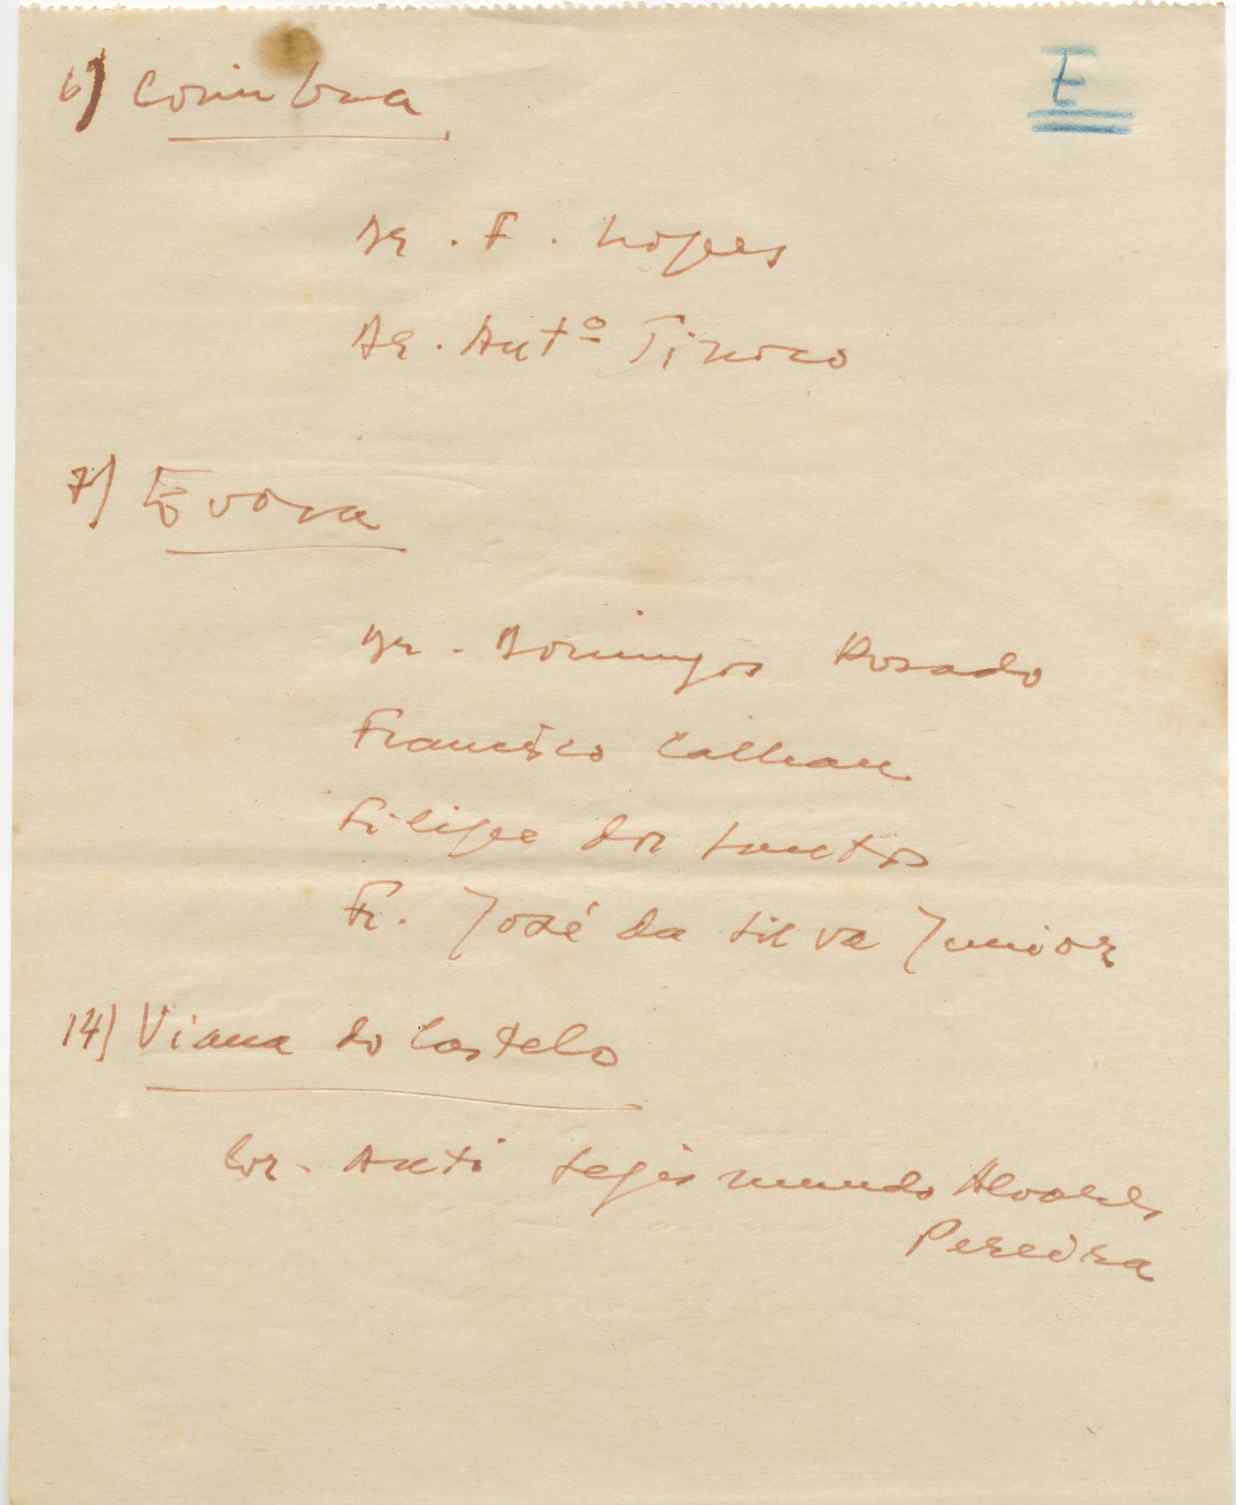 E
6) Coimbra
Dr. F. Lopes
Dr. Antº Tinoco
7) Evora
Dr. Domingos Rosado
Francisco Calhau
Filipe dos Santos
Fr. José da Silva Junior
14) Viana do Castelo
Cor. Antº Segismundo Alvares
Pereira